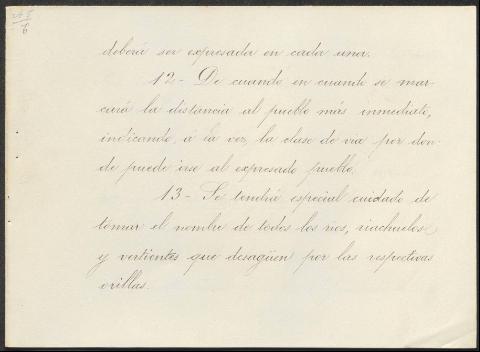 deberá ser expresada en cada una.
12- De cuando en cuando se mar-
cará la distancia al pueblo más inmediato,
indicando, á la vez, la clase de via por don-
de puede irse al expresado pueblo.
13- Se tendrá especial cuidado de
tomar el nombre de todos los rios, riachuelos
y vertientes que desagüen por las respectivas
orillas.